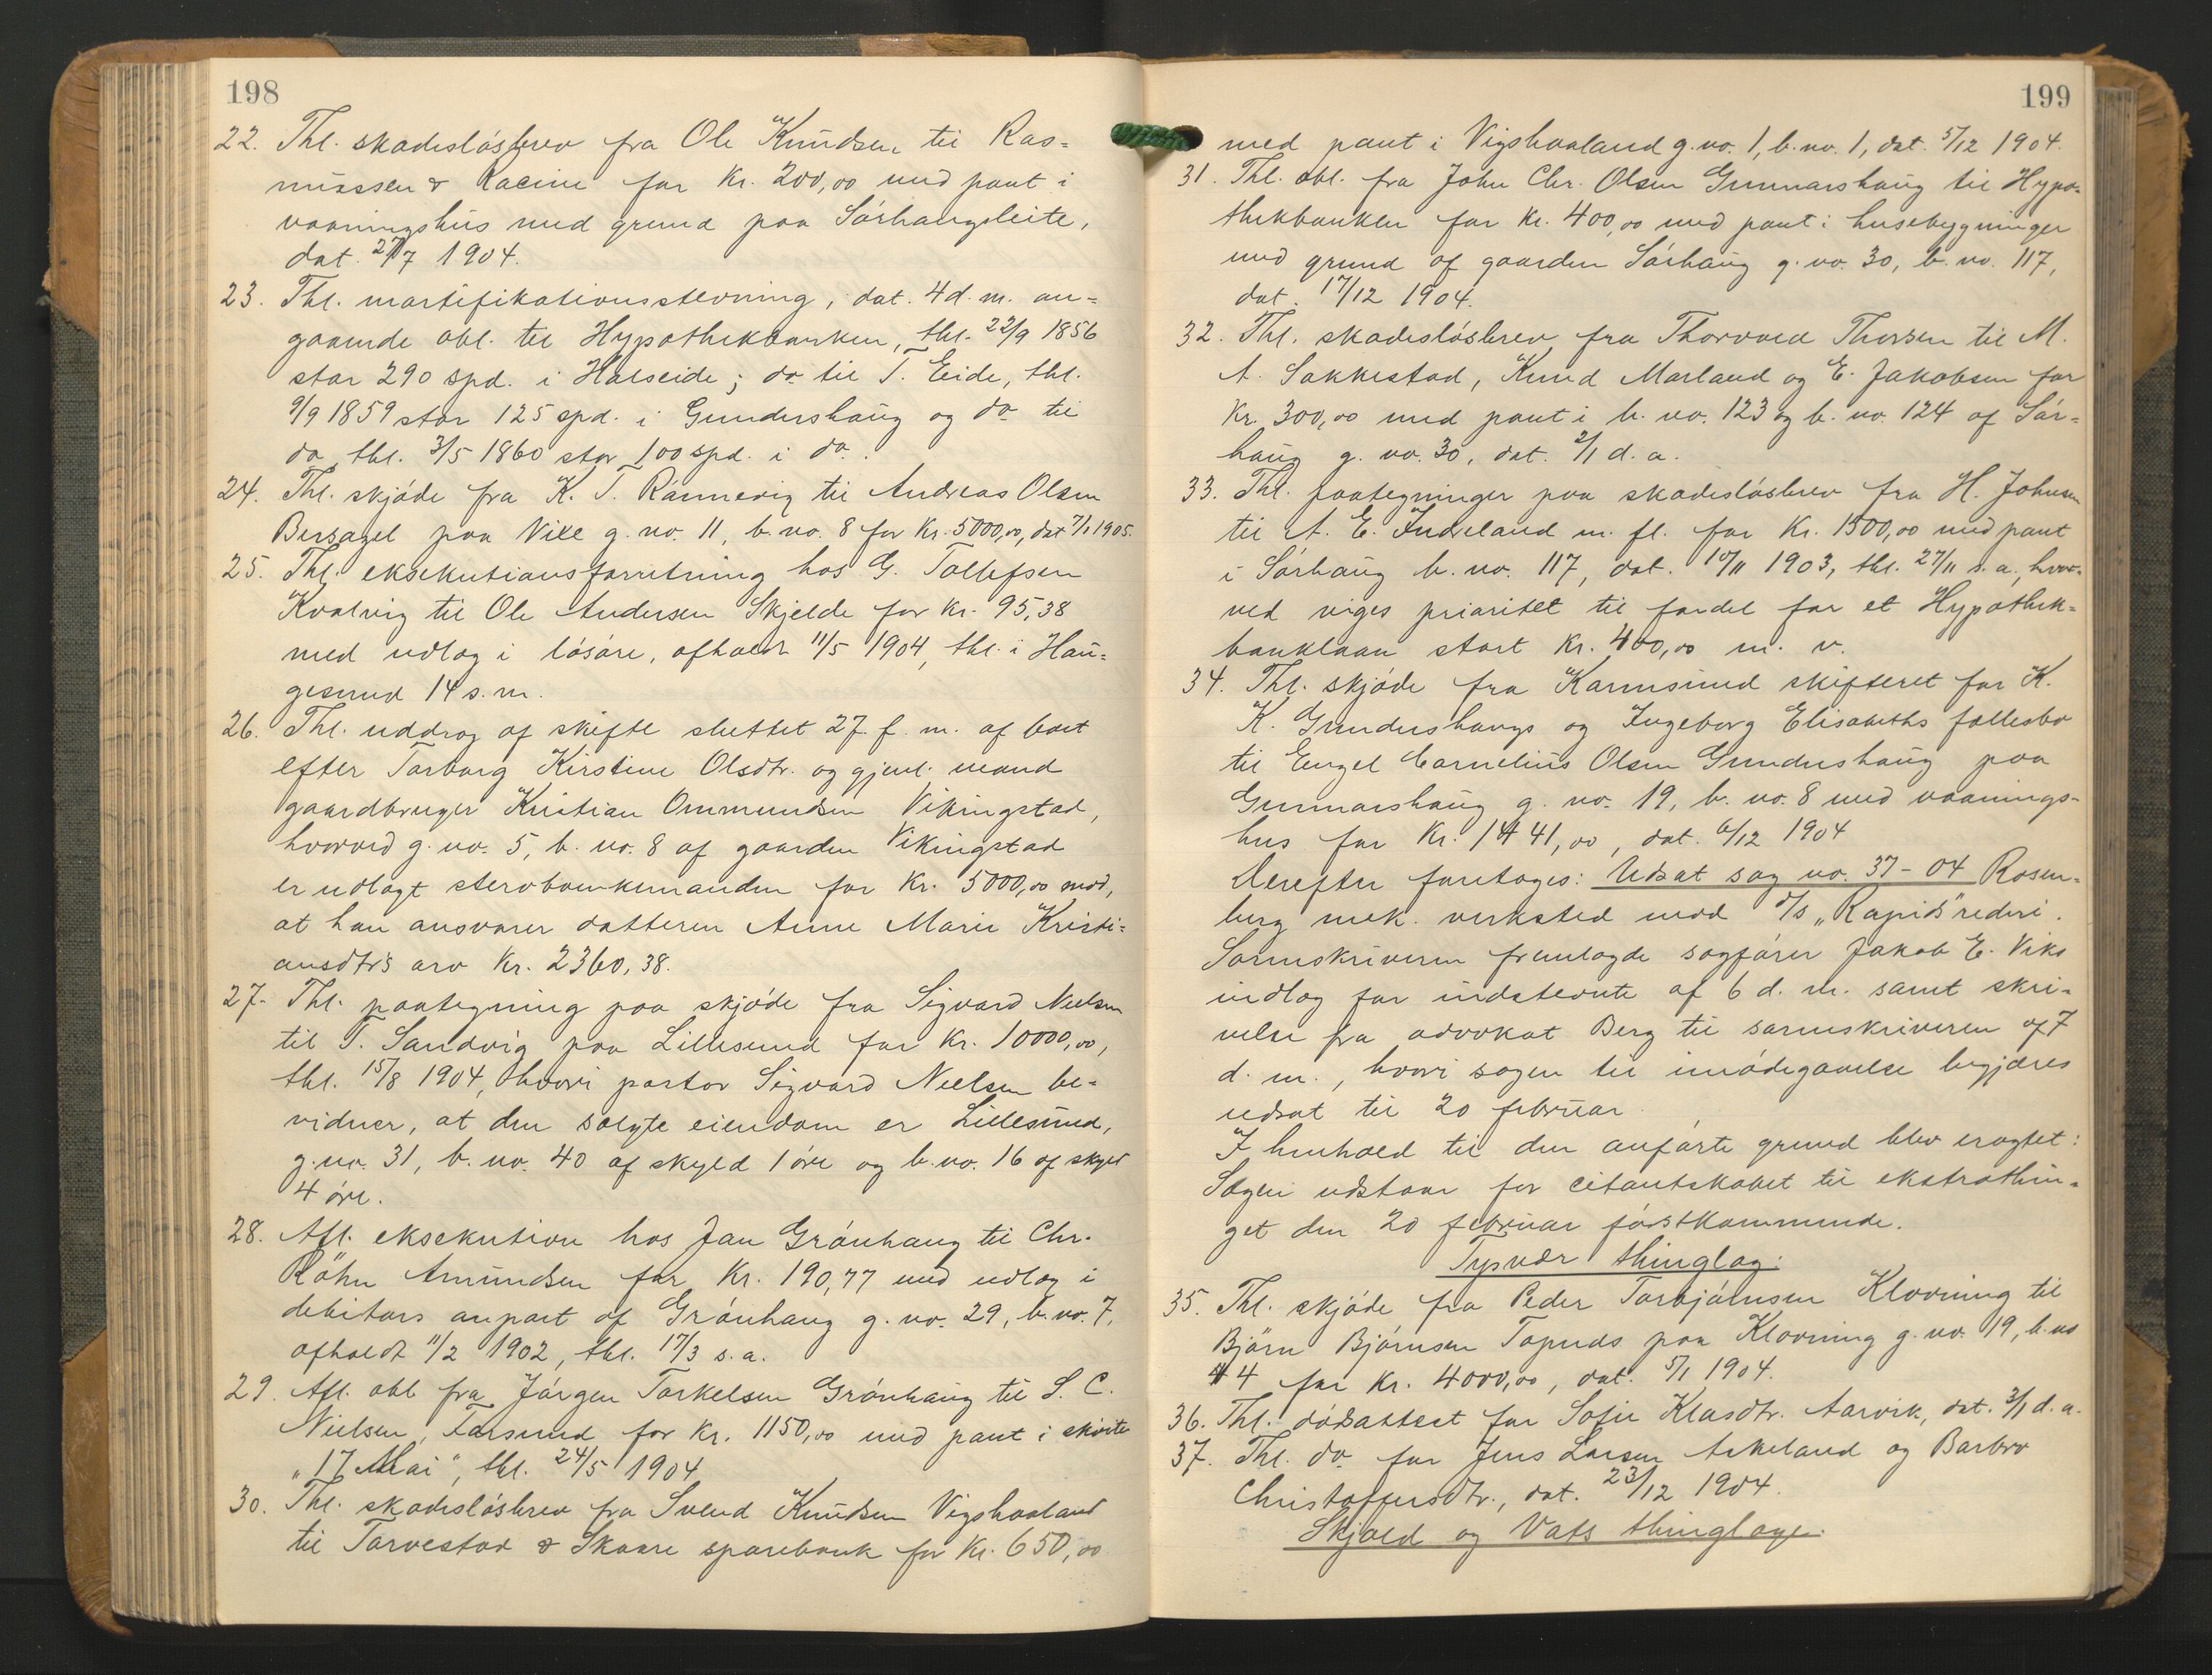 198
22. Thl. skadesløsbrev fra Ole Knudsen til Ras=
mussen & Racine for Kr. 200,00 med pant i
vaaningshus med grund paa Sørhaugsleite,
dat. 27/7 1904.
23. Thl. mortifikationsstevning, dat. 4 d. m. an=
gaaende obl. til Hypothekbanken, thl. 22/9 1856
stor 290 spd. i Halseide; do til T. Eide, thl.
9/9 1859 stor 125 spd. i Gundershaug og do til
do thl. 3/5 1860 stor 100 spd. i do.
24. Thl. skjøde fra K. T. Rønnevig til Andreas Olsen
Bersagel paa Vike g. no. 11, b. no. 8 for Kr. 5000,00, dat 7/1 1905.
25. Thl. eksekutionsforretning hos G. Tollefsen
Kvalvig til Ole Andersen Skjelde for Kr. 95,38
med udlæg i løsøre, afholdt 11/5 1904, thl. i Hau=
gesund 14 s. m.
26. Thl. uddrag af skifte sluttet 27. f. m. af boet
efter Torborg Kirstine Olsdtr. og gjenl. mand
gaardbruger Kristian Ommundsen Vikingstad,
hvorved g. no. 5, b. no. 8 af gaarden Vikingstad
er udlagt stervboenkemanden for Kr. 5000,00 mod,
at han ansvarer datteren Anne Marie Kristi=
ansdtr's arv Kr. 2360,38.
27. Thl. paategning paa skjøde fra Sigvard Nielsen
til T. Sandvig paa Lillesund for Kr. 10000,00,
thl. 15/8 1904, hvori pastor Sigvard Nielsen be=
vidner, at den solgte eiendom er Lillesund,
g. no. 31, b. no. 40 af skyld 1 øre og b. no. 16 af skyld
4 øre.
28. Afl. eksekution hos Jan Grønhaug til Chr.
Röhn Amundsen for Kr. 190,77 med udlæg i
debitors anpart af Grønhaug g. no. 29, b. no. 7,
afholdt 11/2 1902, thl. 17/3 s. a.
29. Afl. obl fra Jørgen Torkelsen Grønhaug til S. C.
Nielsen, Farsund for Kr. 1150,00 med pant i skøite
„17 Mai“, thl. 24/5 1904
30. Thl. skadesløsbrev fra Svend Knudsen Vigshaaland
til Torvestad & Skaare sparebank for Kr. 650,00
199
med pant i Vigshaaland g. no. 1, b. no. 1, dat. 5/12 1904.
31. Thl. obl. fra John Chr. Olsen Gunnarshaug til Hypo=
thekbanken for Kr. 400,00 med pant i husebygninger
med grund af gaarden Sørhaug g. no. 30, b. no. 117,
dat. 17/12 1904.
32. Thl. skadesløsbrev fra Thorvald Thorsen til M.
A. Sakkestad, Knud Marland og E. Jakobsen for
Kr. 300,00 med pant i b. no. 123 og b. no. 124 af Sør=
haug g. no. 30, dat. 2/1 d. a.
33. Thl. paategninger paa skadesløsbrev fra H. Johnsen
til A. E. Indreland m. fl. for Kr. 1500,00 med pant
i Sørhaug b. no. 117, dat. 10/11 1903, thl. 27/11 s. a., hvor=
ved viges prioritet til fordel for et Hypothek=
banklaan stort Kr. 400,00 m. v.
34. Thl. skjøde fra Karmsund skifteret for K.
K. Gundershaugs og Ingeborg Elisabeths fællesbo
til Engel Cornelius Olsen Gundershaug paa
Gunnarshaug g. no. 19, b. no. 8 med vaanings=
hus for Kr. 1441,00, dat. 6/12 1904
Derefter foretoges: Udsat sag no. 37 - 04 Rosen=
berg mek. verksted mod d/s „Rapid“ rederi.
Sorenskriveren fremlagde sagfører Jakob E. Viks
indlæg for indstevnte af 6 d. m. samt skri=
velse fra advokat Berg til sorenskriveren af 7
d. m., hvori sagen til imødegaaelse begjæres
udsat til 20 februar.
I henhold til den anførte grund blev eragtet:
Sagen udstaar for citantskabet til ekstrathin=
get den 20 februar førstkommende.
Tysvær thinglag:
35. Thl. skjøde fra Peder Torbjørnsen Klovning til
Bjørn Bjørnsen Tapnes paa Klovning g. no. 19, b. no
4 for Kr. 4000,00, dat. 5/1 1904.
36. Thl. dødsattest for Sofie Klasdtr. Aarvik, dat. 3/1 d. a.
37. Thl. do for Jens Larsen Askeland og Barbro
Christoffersdtr., dat. 23/12 1904.
Skjold og Vats thinglage.